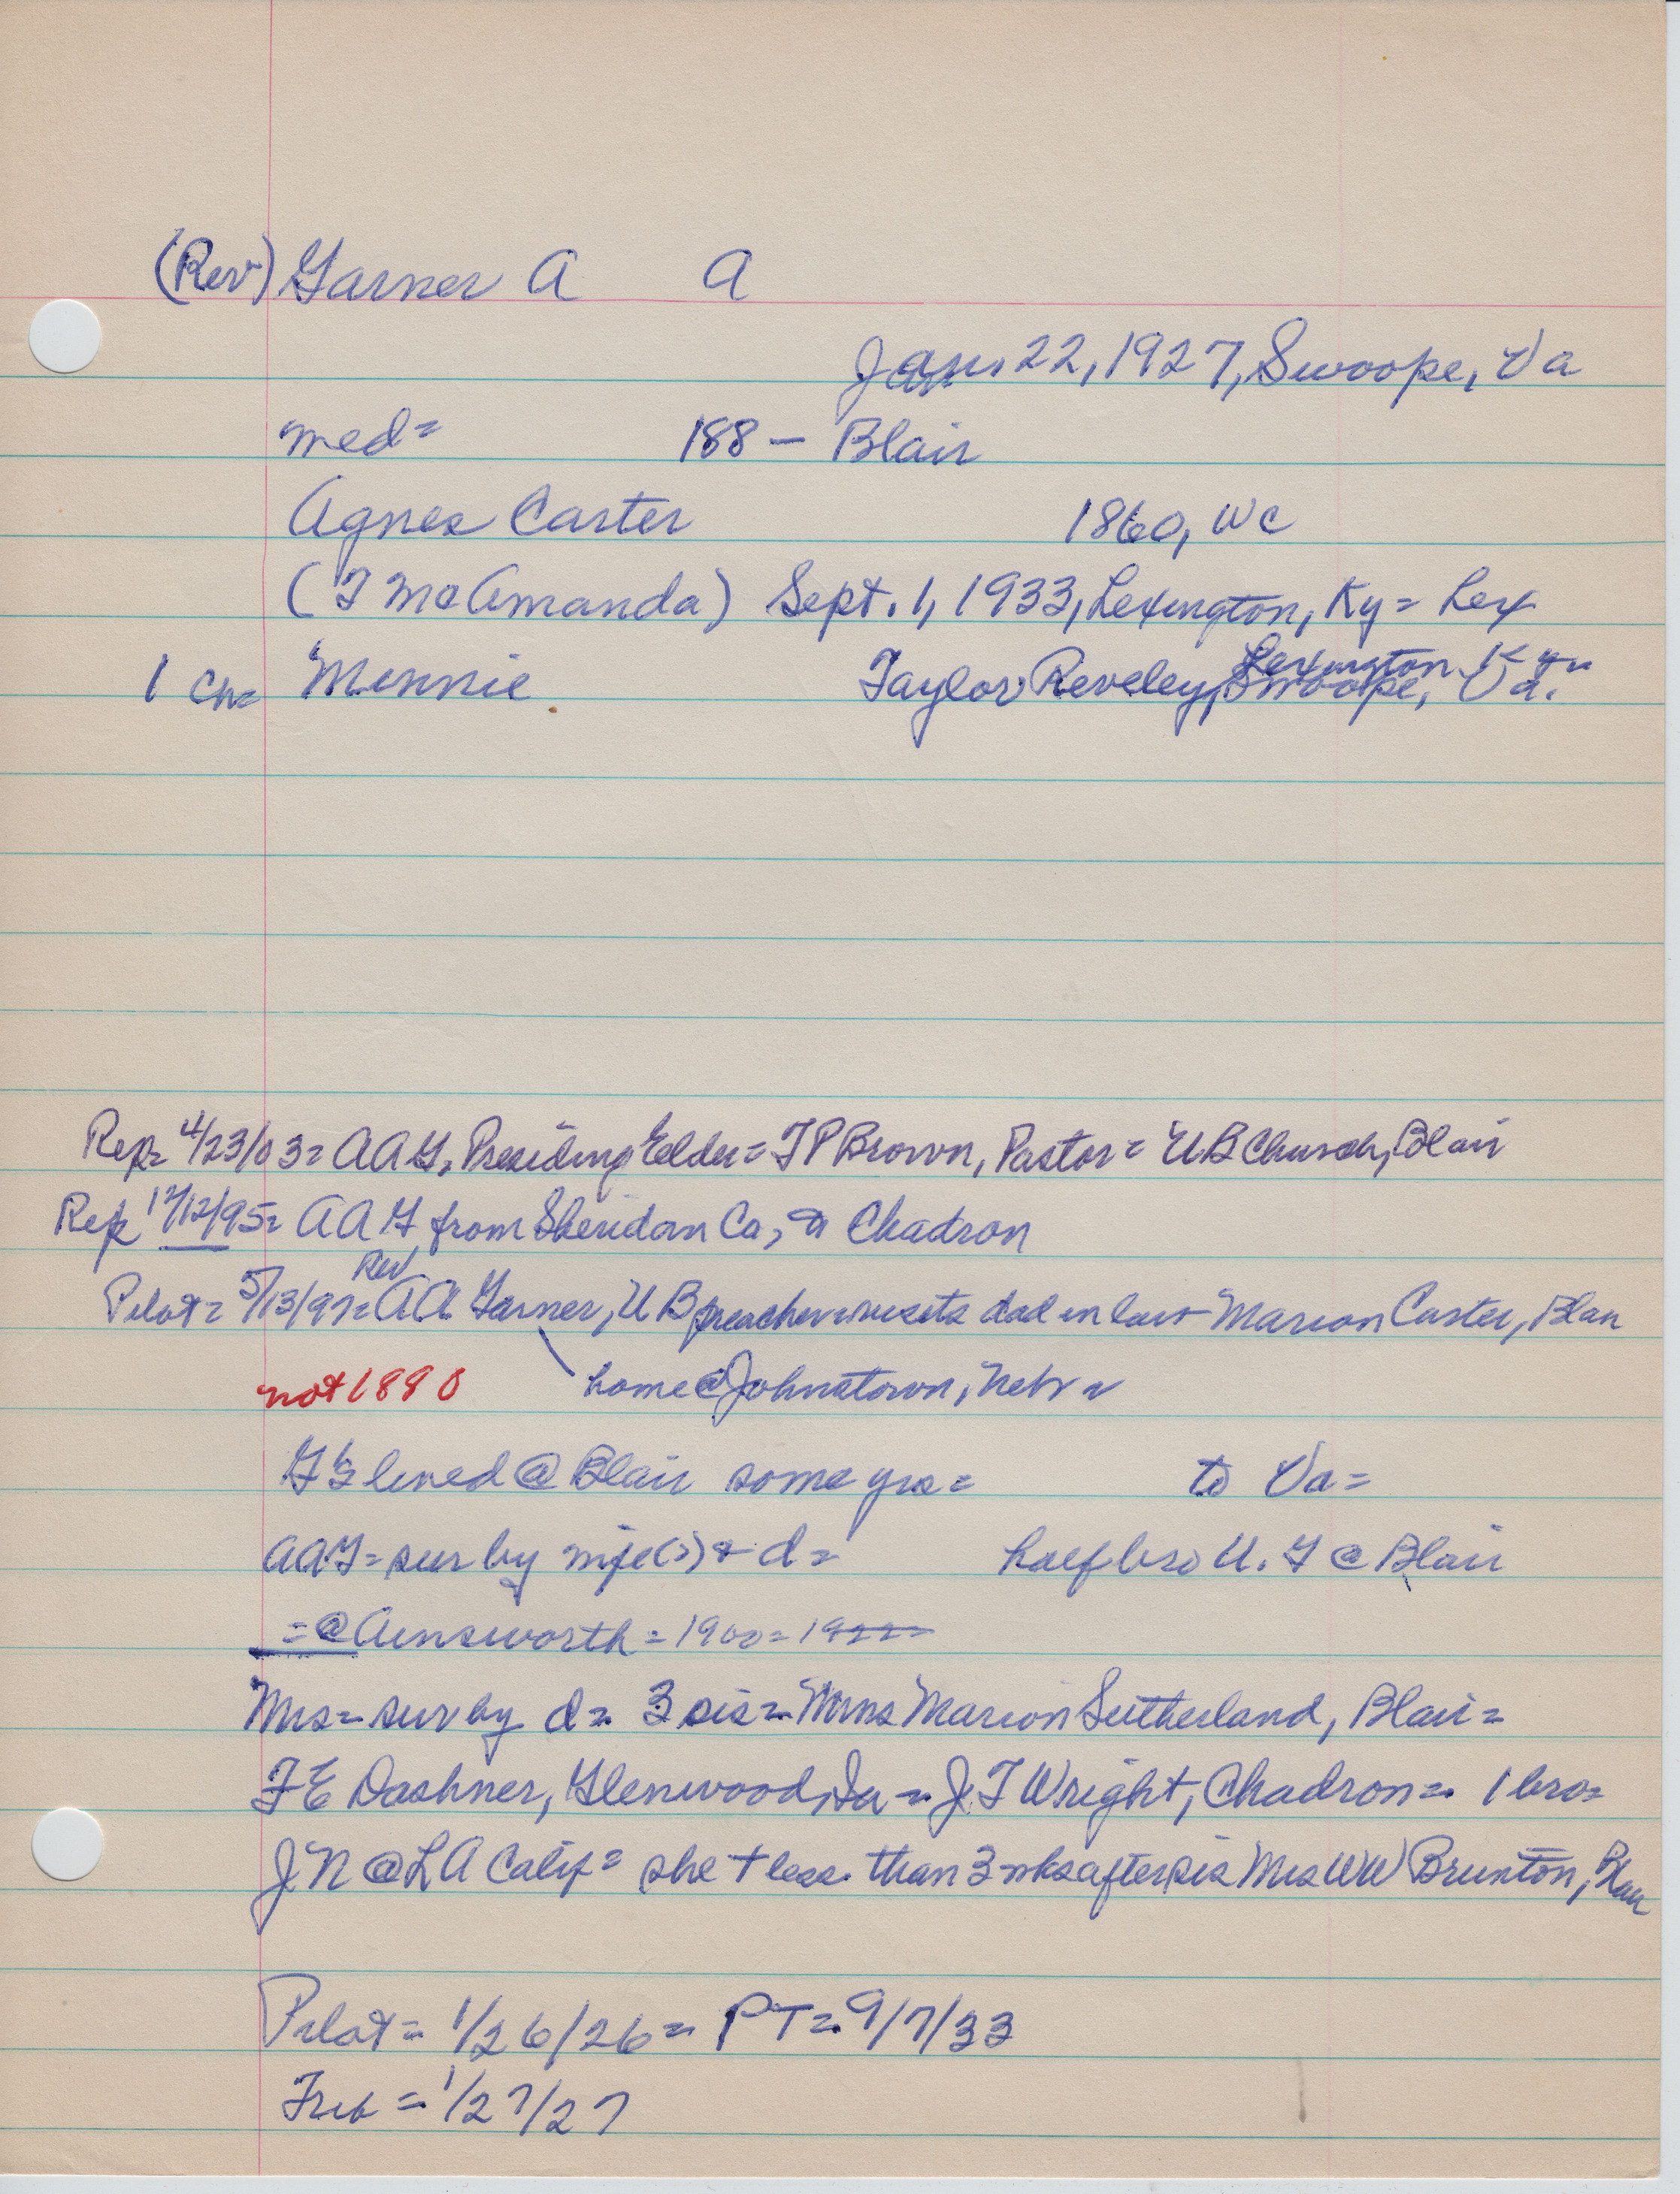 (Rev) Garner A A
Jan. 22, 1927, Swoope, Va
med= 188 - Blair
Agnes Carter 1860, WC
(F Mc Amanda) Sept. 1, 1933, Lexington, Ky = Lex
1 ch= Minnie Taylor Reveley, Swoope, Va. Lexington Ky
Rep= 4/23/03= AAG, Presiding Elder= T P Brown, Pastor= UB Church, Blair
Rep 12/12/95= AAG from Sheridan Co, Chadron
Pilot= 5/13/97= Rev AA Garner, UB preacher visits dad in law Marion Carter, Blair
not 1890 home @ Johnstown, Nebr
G's lived @ Blair some yrs= to Va=
AAG= sur by wife(?) + d= half bro U. G @ Blair
= @ Ainsworth = 1900=
Mrs= sur by d= 3 sis= Mmes Marion Sutherland, Blair=
F E Dashner, Glenwood, Ia = J F Wright, Chadron= 1 bro=
J N @ LA Calif= she + less than 3 wks after sis Mrs WW Brunton, Blair
Pilot= 1/26/26= PT= 9/7/33
Trib= 1/27/27